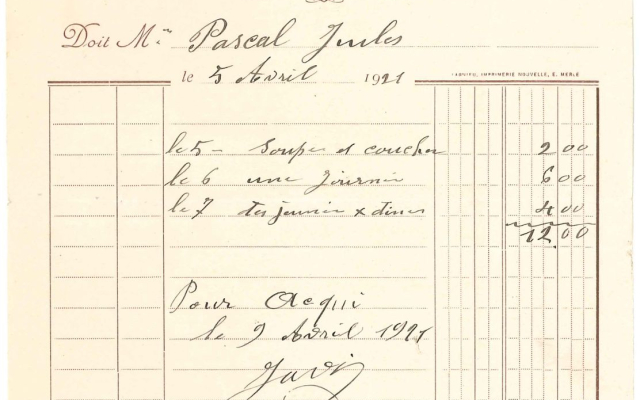 Doit Mr Pascal Jules
le 5 Avril 1921
IMPRIMERIE NOUVELLE, E. MERLE
le 5 - Souper et coucher 2 00
le 6 une Journée 6 00
le 7 des jeunier x diner 4 00
12.00
Pour Acqui
le 9 Avril 1921